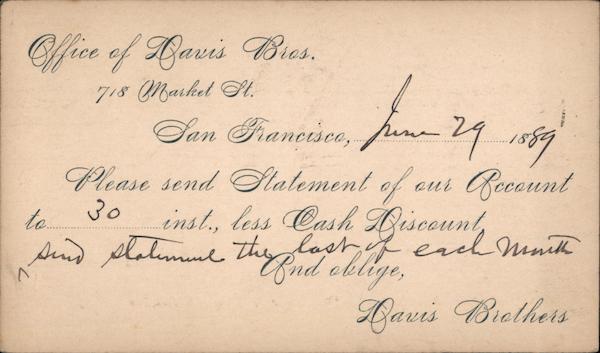 Office of Davis Bros.
718 Market St.
San Francisco, June 29 1889
Please send Statement of our Account
to 30 inst., less Cash Discount
send statement the last of each month
And oblige,
Davis Brothers